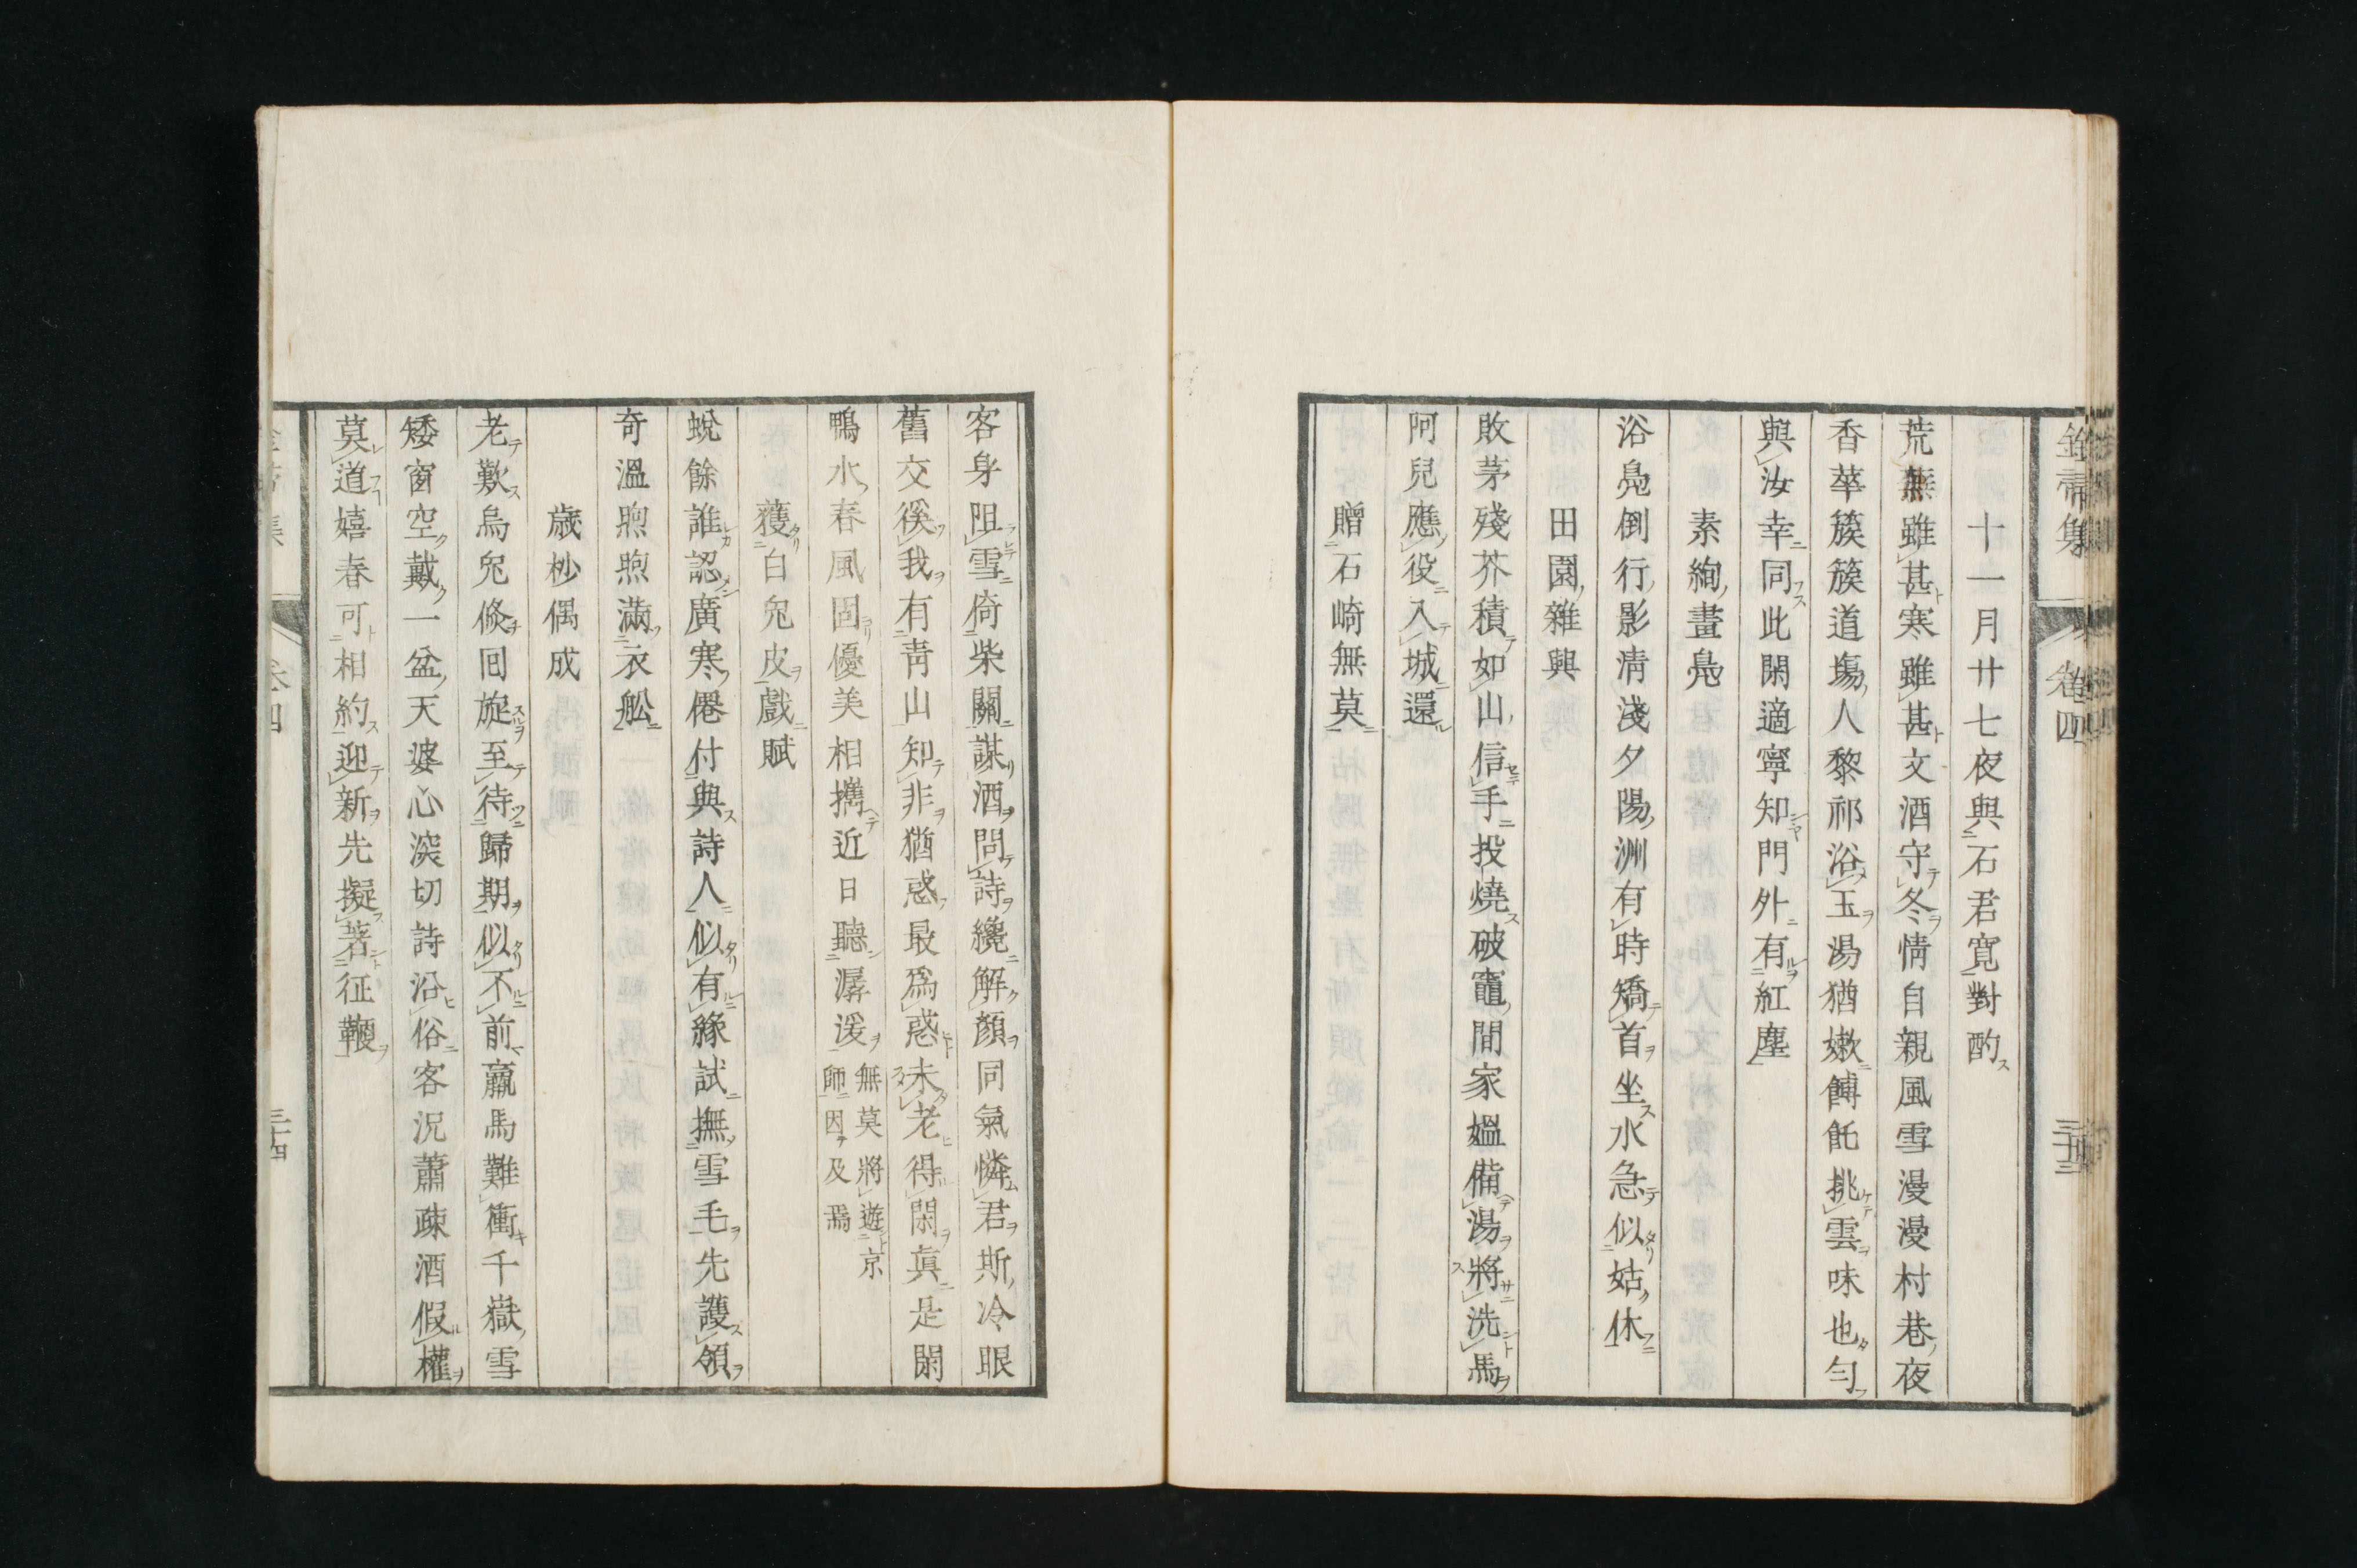 十一月廿七夜與石君寬對酌
荒蕪雖甚寒雖甚文酒守冬情自親風雪漫漫村巷夜
香葷簇簇道場人黎祁浴玉湯猶嫩餺飥挑雲味也勻
與汝幸同此閑適寧知門外有紅塵
素絢畫鳧
浴鳧倒行影淸淺夕陽洲有時矯首坐水急似姑休
田園雜興
敗茅殘芥積如山信手投燒破竈間家媼備湯將洗馬
阿兒應役入城還
贈石崎無莫
客身阻雪倚柴關謀酒問詩纔解顏同氣憐君斯冷眼
舊交徯我有靑山知非猶惑最爲惑未老得閑眞是閑
鴨水春風固優美相攜近日聽潺湲 無莫將遊京師因及焉
獲白兔皮戲賦
蛻餘誰認廣寒僊付與詩人似有緣試撫雪毛先護領
奇溫煦煦滿衣船
歳杪偶成
老歎烏兔倐囘旋至待歸期似不前羸馬難衝千嶽雪
矮窗空戴一盆天婆心深切詩沿俗客況蕭疎酒假權
莫道嬉春可相約迎新先擬著征鞭
卷四